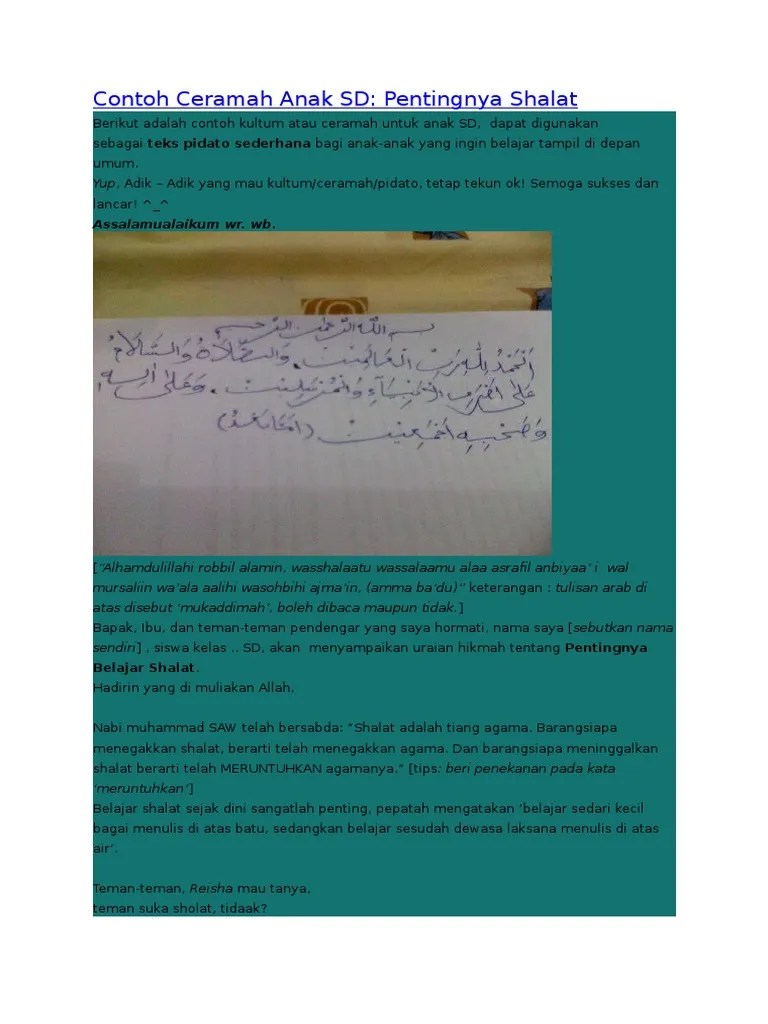 Contoh Ceramah Anak SD: Pentingnya Shalat
Berikut adalah contoh kultum atau ceramah untuk anak SD,  dapat digunakan
sebagai teks pidato sederhana bagi anak-anak yang ingin belajar tampil di depan
umum.
Yup, Adik – Adik yang mau kultum/ceramah/pidato, tetap tekun ok! Semoga sukses dan
lancar! ^_^
Assalamualaikum wr. wb.
بسم الله الرحمن الرحيم
اَلْحَمْدُ لِلّٰهِ رَبِّ الْعَالَمِيْنَ . وَالصَّلَاةُ وَالسَّلَامُ
عَلٰى اَشْرَفِ الْاَنْبِيَآءِ وَالْمُرْسَلِيْنَ . وَعَلٰى اٰلِهِ
وَصَحْبِهِ اَجْمَعِيْنَ (اَمَّا بَعْدُ)
["Alhamdulillahi robbil alamin, wasshalaatu wassalaamu alaa asrafil anbiyaa' i  wal
mursaliin wa'ala aalihi wasohbihi ajma'in, (amma ba'du)" keterangan : tulisan arab di
atas disebut 'mukaddimah', boleh dibaca maupun tidak.]
Bapak, Ibu, dan teman-teman pendengar yang saya hormati, nama saya [sebutkan nama
sendiri] , siswa kelas .. SD, akan  menyampaikan uraian hikmah tentang Pentingnya
Belajar Shalat.
Hadirin yang di muliakan Allah,
Nabi muhammad SAW telah bersabda: "Shalat adalah tiang agama. Barangsiapa
menegakkan shalat, berarti telah menegakkan agama. Dan barangsiapa meninggalkan
shalat berarti telah MERUNTUHKAN agamanya." [tips: beri penekanan pada kata
'meruntuhkan']
Belajar shalat sejak dini sangatlah penting, pepatah mengatakan 'belajar sedari kecil
bagai menulis di atas batu, sedangkan belajar sesudah dewasa laksana menulis di atas
air'.
Teman-teman, Reisha mau tanya,
teman suka sholat, tidaak?